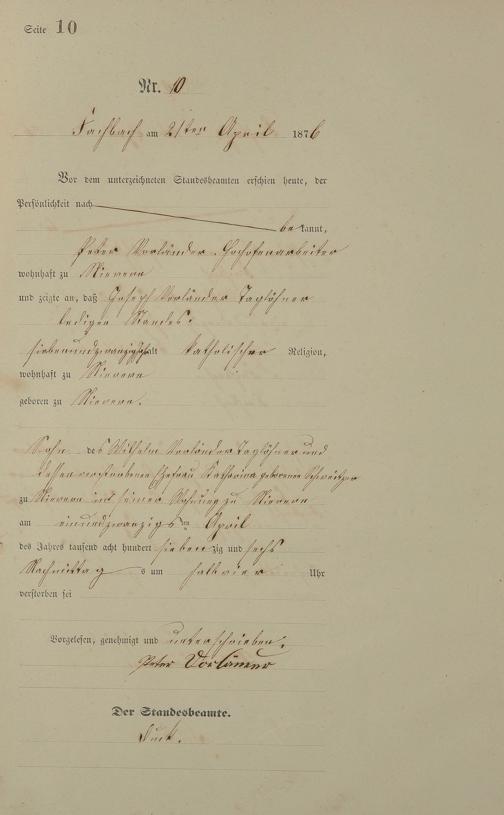 Seite 10
Nr. 10
Fachbach am 21ten April 1876
Vor dem unterzeichneten Standesbeamten erschien heute, der
Persönlichkeit nach
bekannt,
Peter Vorländer Hochofenarbeiter
wohnhaft zu Nievern
und zeigte an, daß Joseph Vorländer Taglöhner
ledigen Standes,
siebenundzwanzig Jahre alt katholischer Religion,
wohnhaft zu Nievern
geboren zu Nievern.
Sohn des Wilhelm Vorländer Taglöhner und
dessen verstorbene Ehefrau Katharina geborene Schweitzer
zu Nievern in seiner Wohnung zu Nievern
am einundzwanzigsten April
des Jahres tausend acht hundert siebenzig und sechs
Nachmittags um halb vier Uhr
verstorben sei
Vorgelesen, genehmigt und unterschrieben.
Peter Vorländer
Der Standesbeamte.